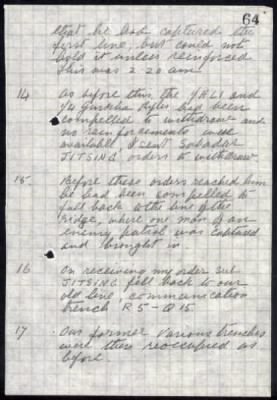 64
that he had captured the
first line, but could not
hold it unless reinforced
this was 2 20 am
14 As before this the JALI and
1/4 Gurkha Rifles had been
compelled to withdraw and
no reinforcements were
available, I sent Subadar
JITSING orders to withdraw
15. Before these orders reached him
he had been compelled to
fall back to the line of the
ridge, where one man of an
enemy patrol was captured
and brought in.
16 On receiving my order Sub
JITSING fell back to our
old line, communication
trench R5 - Q15.
17. Our former various trenches
were then reoccupied as
before